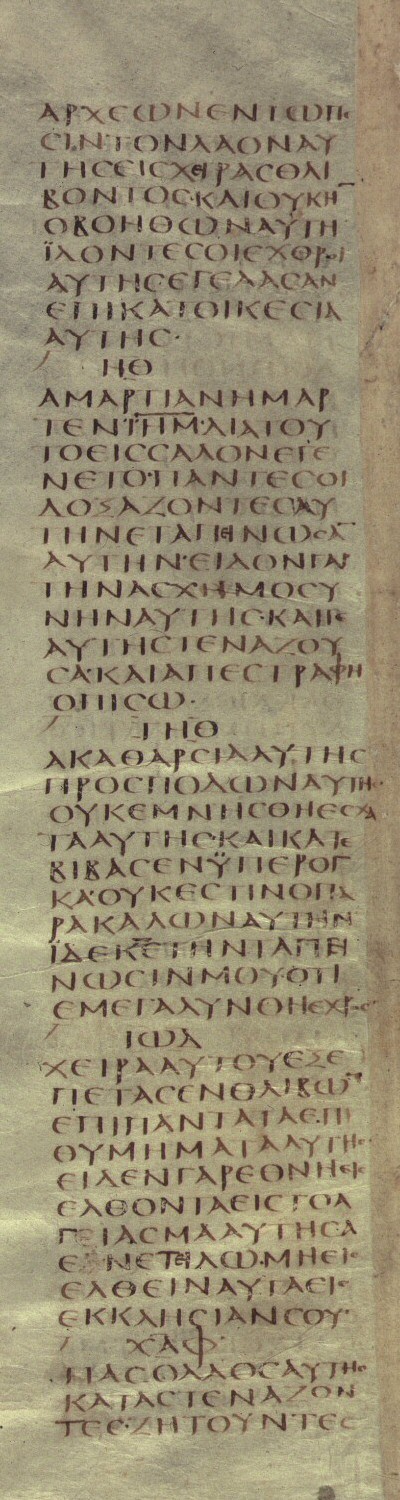 ΑΡΧΕΩΝΕΝΤΩΠΕ
ϹΙΝΤΟΝΛΑΟΝΑΥ
ΤΗϹΕΙϹΧΕΙΡΑϹΘΛΙ
ΒΟΝΤΟϹ·ΚΑΙΟΥΚΗ¯
ΟΒΟΗΘΩΝΑΥΤΗ
ΪΔΟΝΤΕϹΟΙΕΧΘΡΟΙ
ΑΥΤΗϹΕΓΕΛΑϹΑΝ
ΕΠΙΚΑΤΟΙΚΕϹΙΑ
ΑΥΤΗϹ·
ΗΘ
ΑΜΑΡΤΙΑΝΗΜΑΡ
ΤΕΝΙΗΜ·ΔΙΑΤΟΥ
ΤΟΕΙϹϹΑΛΟΝΕΓΕ
ΝΕΤΟ·ΠΑΝΤΕϹΟΙ
ΔΟΞΑΖΟΝΤΕϹΑΥ
ΤΗΝΕΤΑΠΕΙΝΩϹΑ¯
ΑΥΤΗΝ·ΕΙΔΟΝΓΑΡ
ΤΗΝΑϹΧΗΜΟϹΥ
ΝΗΝΑΥΤΗϹ·ΚΑΙΓΕ
ΑΥΤΗϹΤΕΝΑΖΟΥ
ϹΑ·ΚΑΙΑΠΕϹΤΡΑΦΗ
ΟΠΙϹΩ·
ΤΗΘ
ΑΚΑΘΑΡϹΙΑΑΥΤΗϹ
ΠΡΟϹΠΟΔΩΝΑΥΤΗϹ·
ΟΥΚΕΜΝΗϹΘΗΕϹΧΑ
ΤΑΑΥΤΗϹ·ΚΑΙΚΑΤΕ
ΒΙΒΑϹΕΝΫΠΕΡΟΓ
ΚΑ·ΟΥΚΕϹΤΙΝΟΠΑ
ΡΑΚΑΛΩΝΑΥΤΗΝ
ΪΔΕΚΕΤΗΝΤΑΠΕΙ
ΝΩϹΙΝΜΟΥ·ΟΤΙ
ΕΜΕΓΑΛΥΝΘΗΕΧΘΡΟϹ
ΙΩΔ
ΧΕΙΡΑΑΥΤΟΥΕΞΕ
ΠΕΤΑϹΕΝΘΛΙΒΩ¯
ΕΠΙΠΑΝΤΑΤΑΕΠΙ
ΘΥΜΗΜΑΤΑΑΥΤΗϹ·
ΕΙΔΕΝΓΑΡΕΘΝΗΕΙϹ
ΕΛΘΟΝΤΑΕΙϹΤΟΑ
ΓΕΙΑϹΜΑΑΥΤΗϹΑ
ΕΝΕΤΕΙΛΩ·ΜΗΕΙϹ
ΕΛΘΕΙΝΑΥΤΑΕΙϹ
ΕΚΚΛΗϹΙΑΝϹΟΥ·
ΧΑΦ·
ΠΑϹΟΛΑΟϹΑΥΤΗϹ
ΚΑΤΑϹΤΕΝΑΖΟΝ
ΤΕϹ·ΖΗΤΟΥΝΤΕϹ